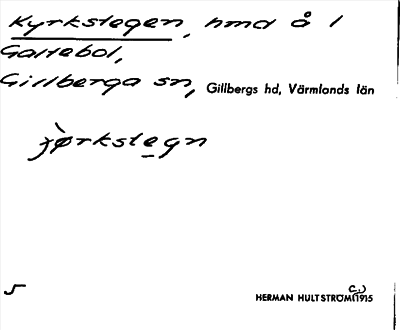 Kyrkstegen, hmd å 1
Galtebol,
Gillberga sn, Gillbergs hd, Värmlands län
jø̀rkstegn
5
HERMAN HULTSTRÖM (c.) 1915